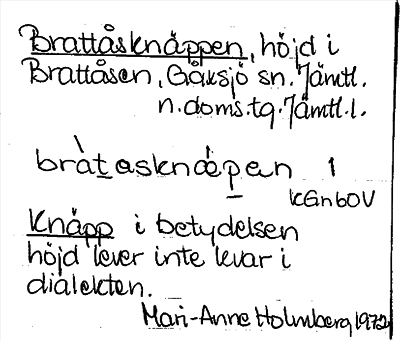 Brattåsknäppen, höjd i
Brattåsen, Gåxsjö sn. Jämtl.
n. doms. tg. Jämtl. l.
bràtasknǽpen 1
KGnbOV
Knäpp i betydelsen
höjd lever inte kvar i
dialekten.
Mari-Anne Holmberg 1972